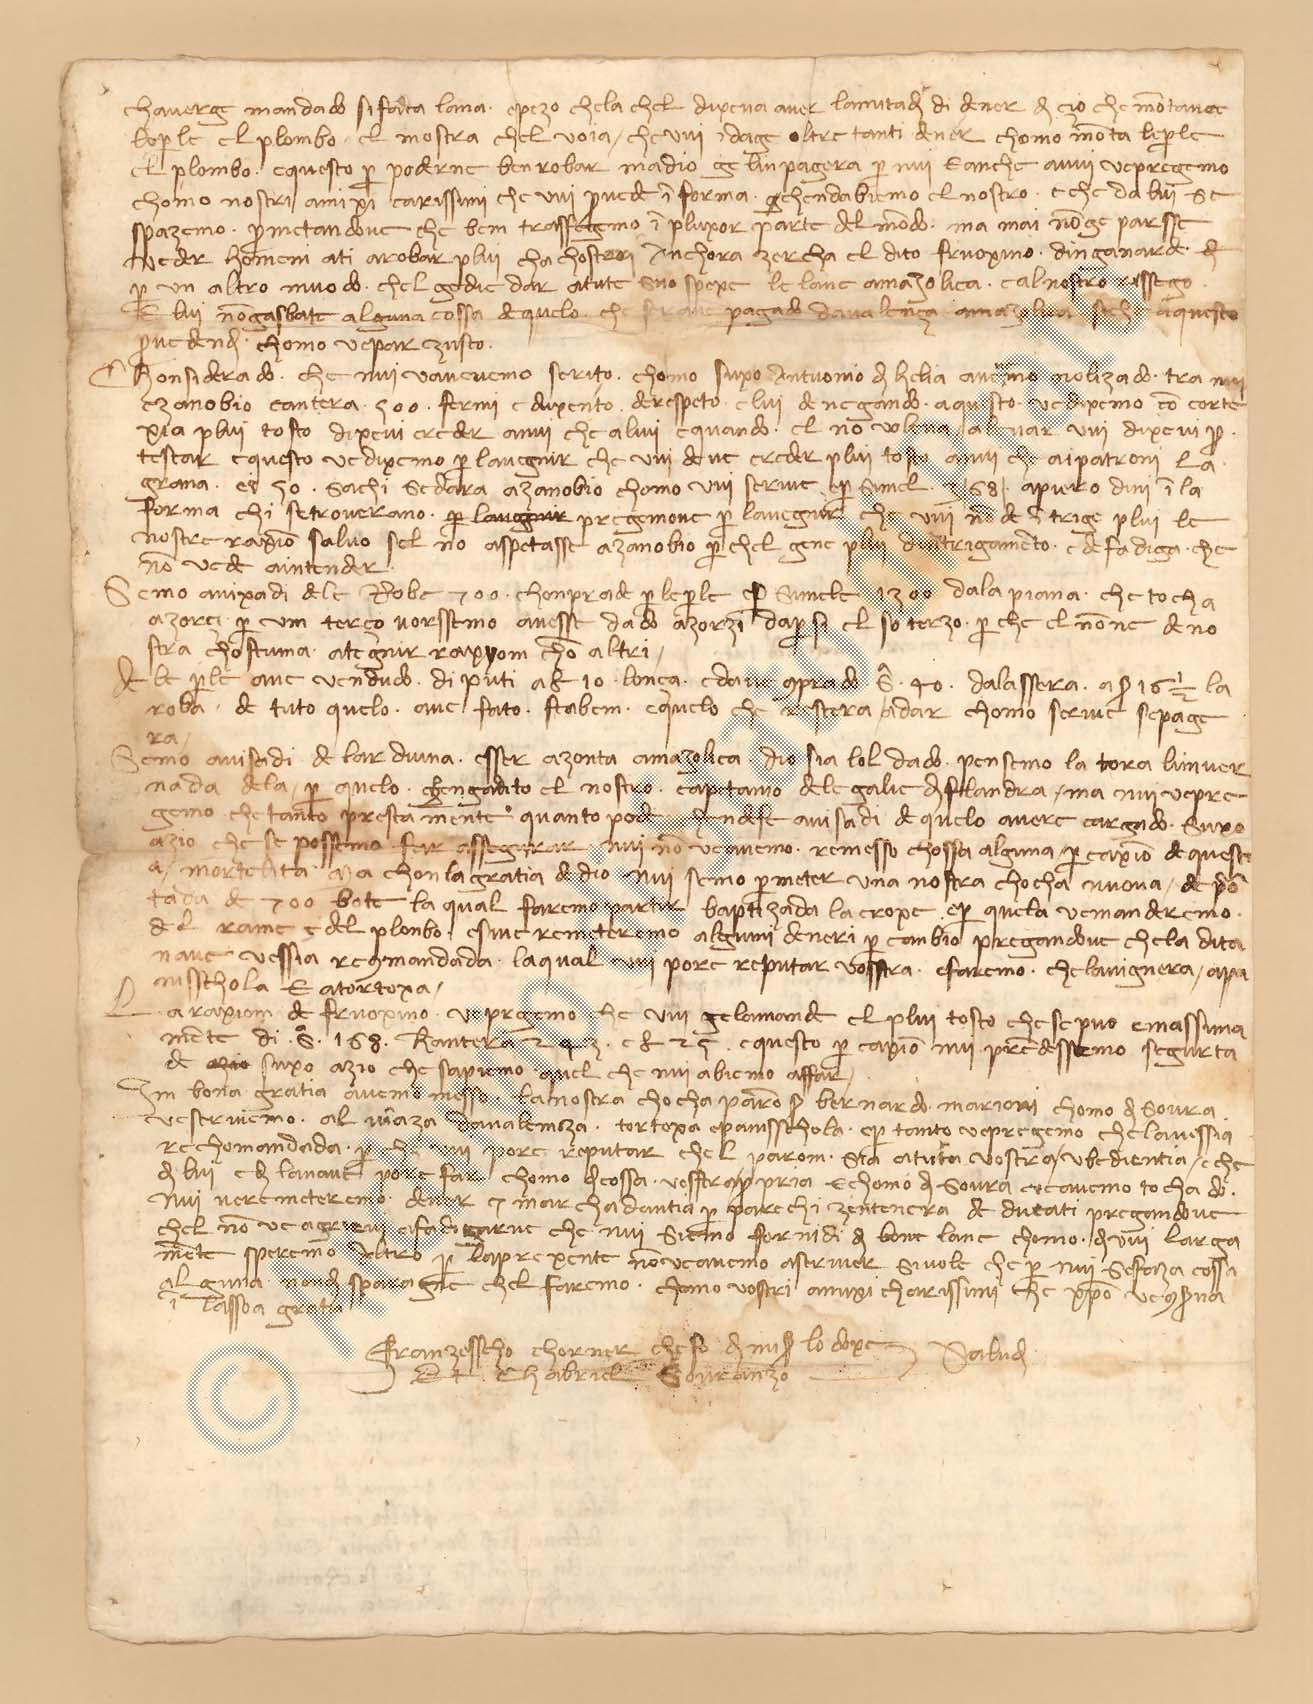 chaverge mandado si fata lana. epezo chela chel dixeva aver lamitade di dener de cio che montavae
leple el plombo. el mostra chel voia / che vui i dage oltre tanti dener chomo monta leperle
el plombo. equesto per poderne ben robar madio ge lin pagera per nui Eanche avui vepregemo
chomo nostri amixi carissimi che vui provede in forma. che abiemo el nostro. e che da lui se
spazemo. prometandove che ben trassegemo in pluxor parte del mondo. ma mai non ge parsse
veder homem ati arobar plui cha chosteri Anchora zercha el dito fruoxino. dinganarde. de
per un altro muodo. chel ge die dar atute suo spexe le lane amazolica. e al nostro rissego.
E lui non alguna cossa de quelo. che pagado davalenza amazolica aquesto
provedende. chomo vepar zusto.
Chonsiderado. che nui vavevemo scrito. chomo suxo Antuonio de avemo nolizado. tra nui
ezanobio cantera. 500. fermi e duxento. derespeto. e lui denegando. aquesto. vedixemo con corte
xia plui tosto dixevi creder anui che alui equando. el non voleva alevar vui dixevi pro
testar equesto vedixemo per lavegnir che vui deve creder plui tosto anui che aipatroni La
grana. 50. sachi azanobio chomo vui scrive 168. apuero dini in la
forma chi setroverano. pregemove per lavegnir che vui non de trige plui le
nostre raxion salvo sel no aspetasse azanobio per chel gene plui dentrigamento. e defadiga. che
non vede aintender.
Semo avixadi dele Robe 700. chonprade per leperle 1300 dala piana. che tocha
azorzi per um terzo vorssemo avesse dado azorzi dapersi el so terzo. per che el non ne de no
stra chostuma. ategnir raxom chon altri /
de le perle ave vendudo. di puti a 10. lonza. edave conprado 40. dalassera. a 16 1/2 la
roba. de tuto quelo. ave fato. stabem. equelo che restera / adar chomo scrive sepage
ra /
Semo avisadi de larduina. esser azonta amazolica dio sia lol dado. pensemo la tora linver
nada dela / per quelo. el nostro. capetanio dele galie de flandra / ma nui vepre
gemo che tanto prestamente quanto pode avisadi de quelo avere cargado. suxo
azio che se possemo far assegurar nui non veavemo. remesso chossa alguna / per caxion de queste
a / mortelita Ma chon la gratia de dio nui semo per meter una nostra chocha nuova / de por
tada de 700 bote la qual faremo partir baptizada la crope. e per quela vemanderemo.
del rame e del plonbo. esive remeteremo alguni deneri per canbio pregandove chela dita
nave vessia recomandada. laqual vui pore reputar vosstra. efaremo. chelavignera / apa
nisschola E atortoxa /
La raxiom de fruoxino. vepregemo che vui gelamande el plui tosto chesepuo emassima
mente di 168. Kantera 242. e 25. equesto per caxion nui presdessemo segurta
de suxo azio che sapiemo quel che nui abiemo affar /
In bona gratia avemo messo. lanostra chocha paron ser bernardo. marioni chomo de sovra
vescrivemo. al viaza davalemza. tortoxa epanisschola. e per tanto vepregemo chelavessia
rechomandada. per che vui pore reputar chel parom. sta atuta vostra / ubedientia / e che
de lui e de lanave pore far. chomo de cossa. vosstra propria Echomo de sovra veavemo tochado.
nui veremeteremo. dener e marchadantia per parechi zentenera de ducati pregandove
chel non ve agrievi esfadigarve che nui siemo fornidi de bone lane chomo. de vui larga
mente speremo Altro per laprexente non veavemo ascriver sivole che per nui sefaza cossa
alguna. non de sparagne chel faremo. chomo vostri amixi charissimi che xpo veconserva
in lassoa gratia
Franzesscho chorner che fo de miser lo doxe Salude
Et Ghabriel Sovranzo